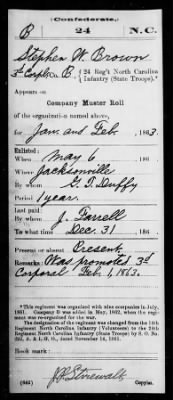 Confederate.
B 24 N.C.
Stephen W. Brown
3d Corpl, Co. B, 24 Reg't North Carolina
Infantry (State Troops).*
Appears on
Company Muster Roll
of the organization named above,
for Jan and Feb, 1863.
Enlisted:
When May 6, 186
Where Jacksonville
By whom G. T. Duffy
Period 1 year.
Last paid:
By whom J. Farrell
To what time Dec. 31, 186
Present or absent Present
Remarks: Was promoted 3d
Corporal Feb. 1, 1863.
*This regiment was organized with nine companies in July,
1861. Company D was added in May, 1862, when the regiment
was re-organized.
The designation of the regiment was changed from the 14th
Regiment North Carolina Infantry (Volunteers) to the 24th
Regiment North Carolina Infantry (State Troops) by S. O. No.
dated November 14, 1861.
Book mark:
(642) J. P. Stirewalt
Copyist.